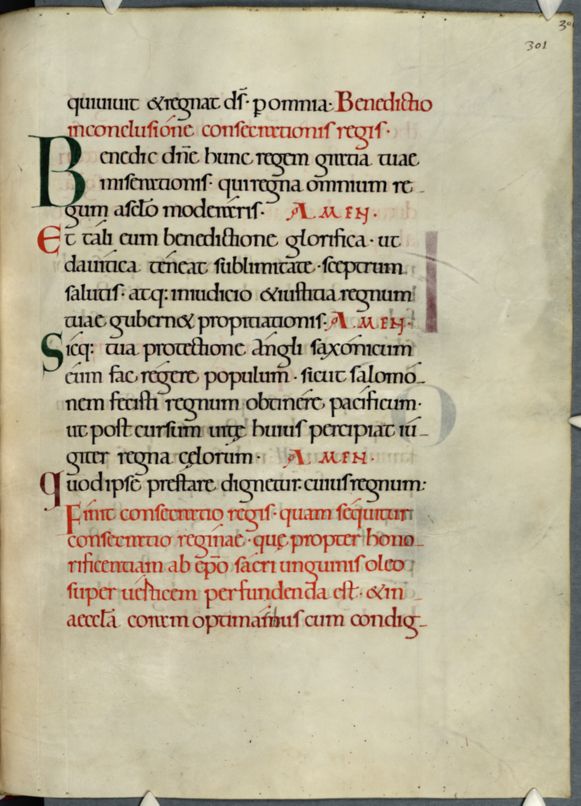 301
quiuiuit &regnat ds̄· p̱omnia· Benedictio
inconclusióne consecrationis regis·
Benedic dn̄e hunc regem gratia tuae
miserationis· quiregna omnium re-
gum asc̄lo moderaris· AMEN·
Et tali eum benedictione glorifica· ut
dauitica teneat sublimitate· sceptrum
salutis· atq; iniudicio &iustitia regnum
tuae gubern& propitiationis: AMEN·
Sicq; tua protectione ángli sáxonicum
eum fac régere populum· sicut salomo-
nem fecisti regnum obtinére pacificum·
ut post cursum uitę huius percipiat iu-
giter regna cęlorum· AMEN·
quodipse prestare dignetur· cuiusregnum:
Finit consecratio regis· quam sequitur
consecratio reginae· quę propter hono-
rificentiam ab ep̄o sacri unguinis oleo
super uerticem perfundenda est· &in
aeccl̄a coram optimatibus cum condig-